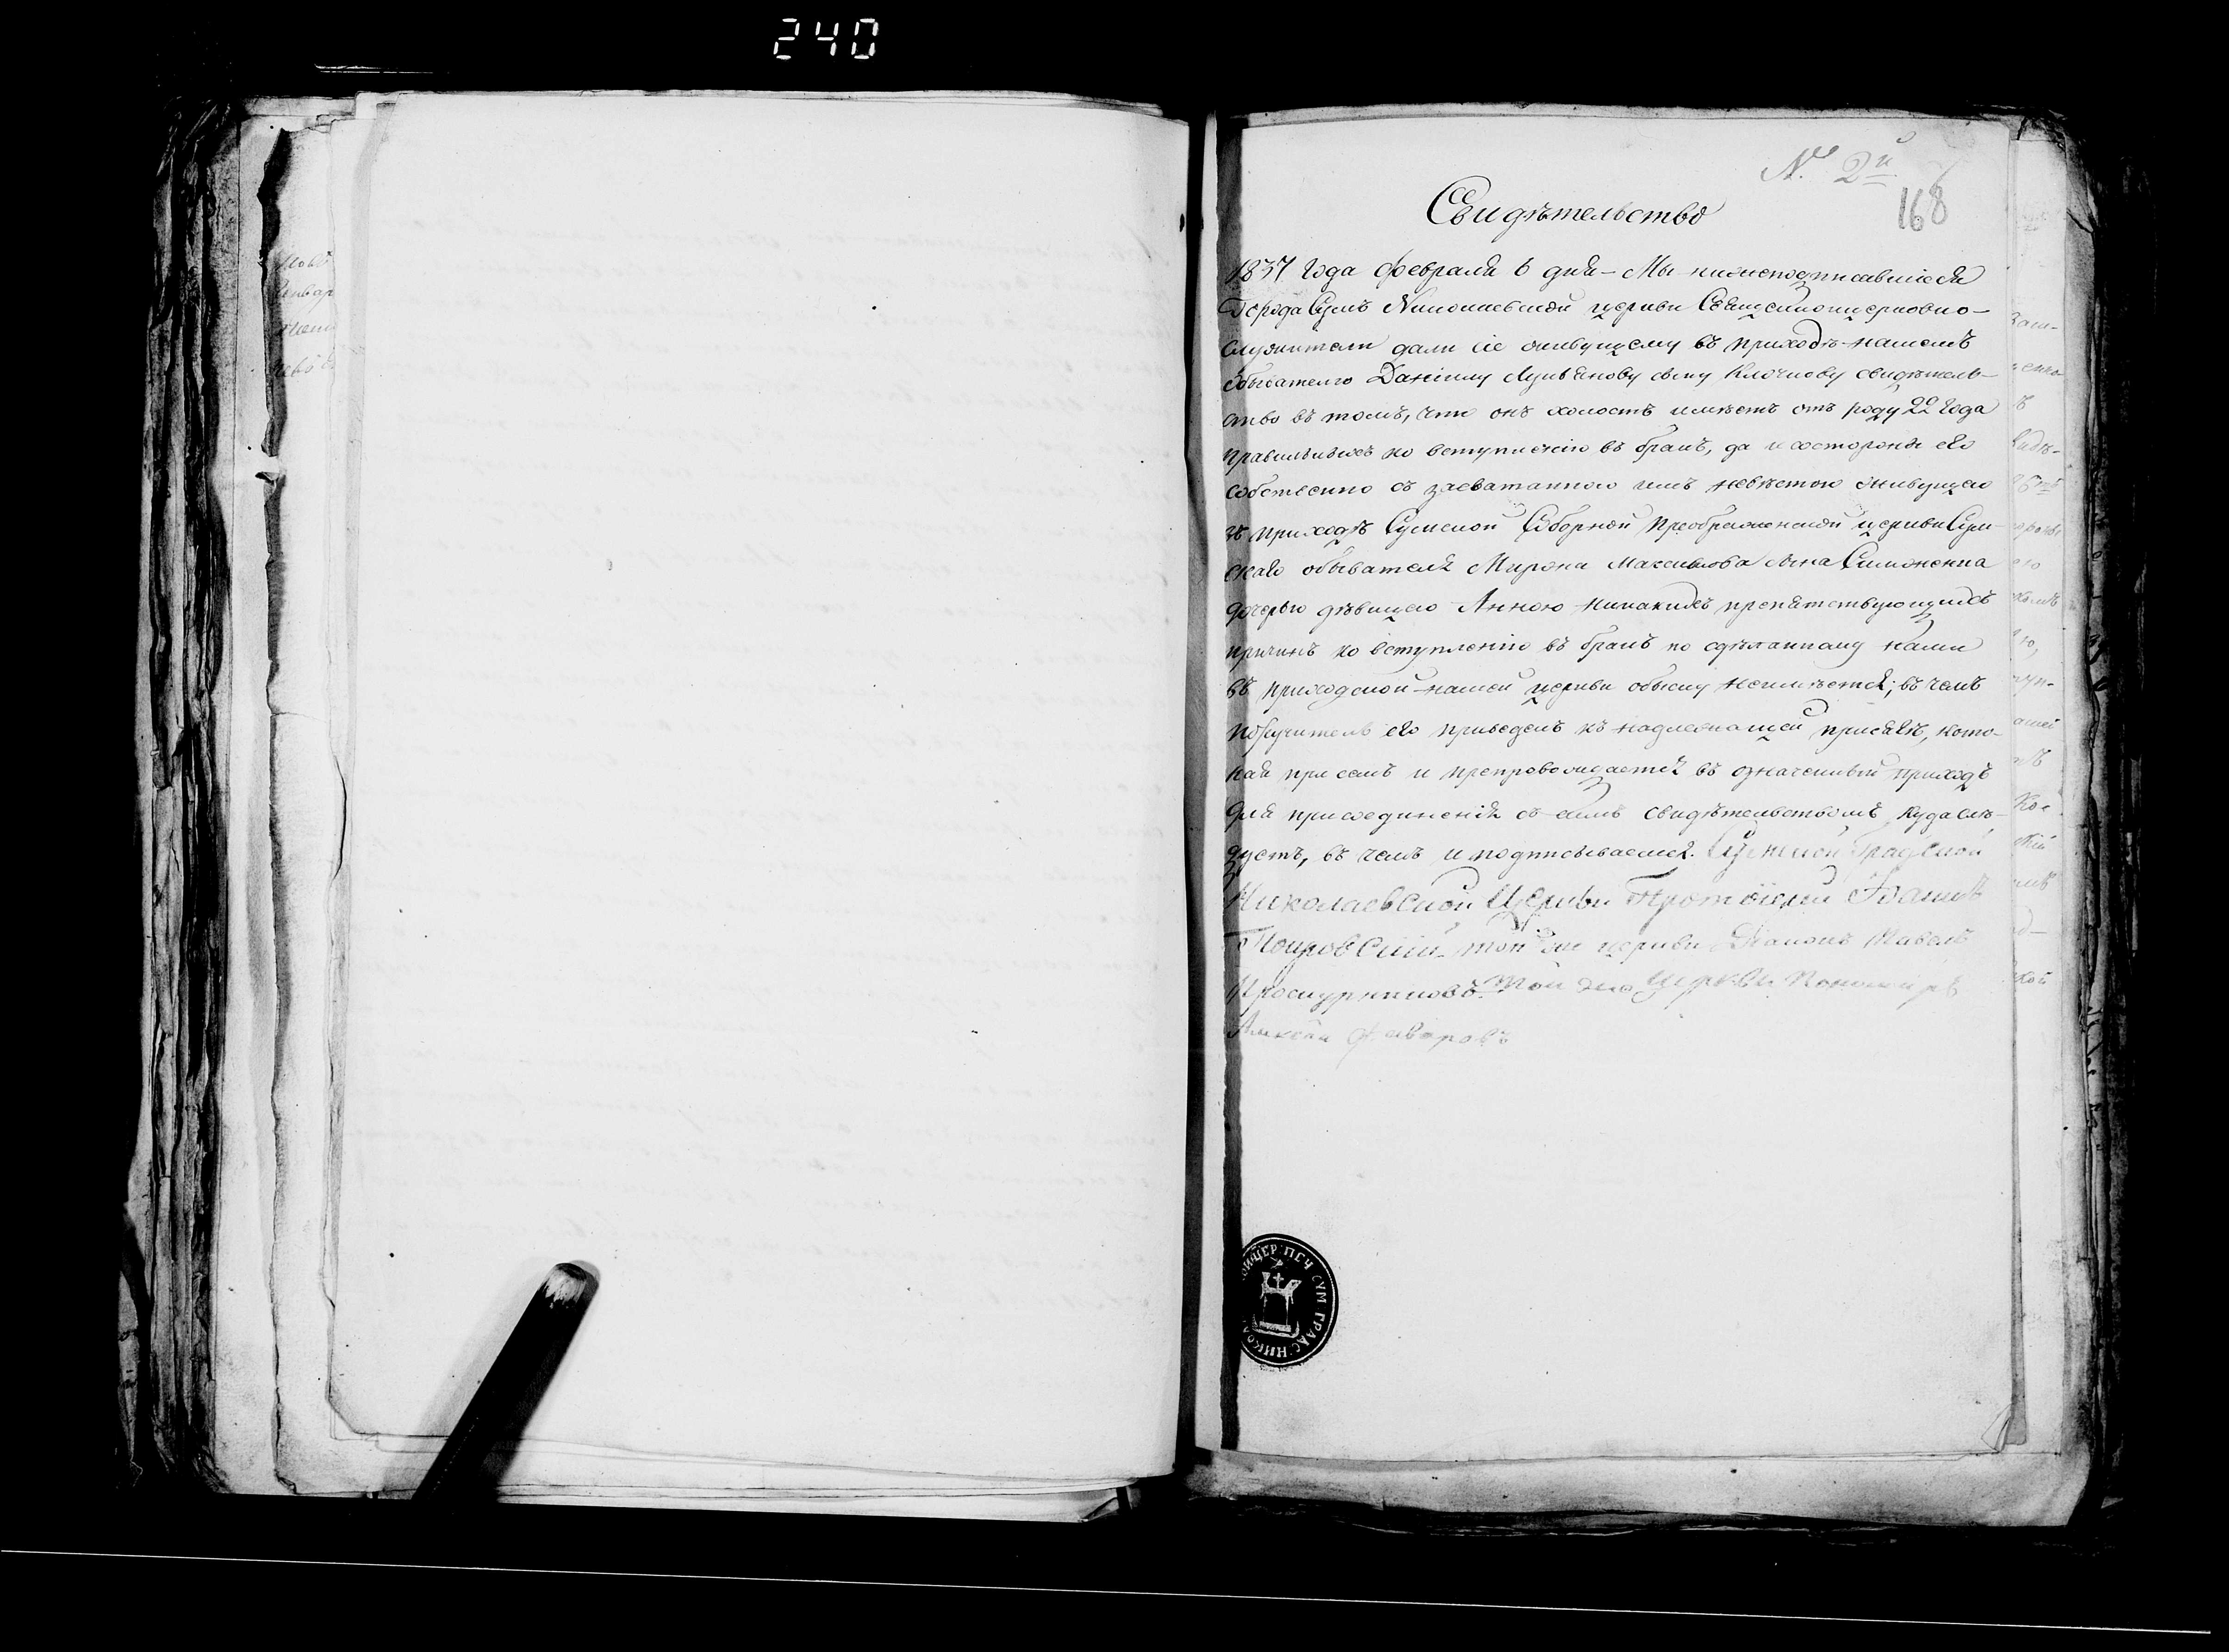 240
№ 2й
168
Свидѣтельство
1837 года Февраля 6 дня – Мы нижеподписавшіеся
Города Сумъ Николаевской церкви Священноцерковно-
служители дали сіе живущему въ приходѣ нашемъ
обывателю Даніилу Лукьянову сыну Клочкову свидѣтель-
ство въ томъ, что онъ холостъ имѣетъ отъ роду 22 года
правильныхъ ко вступленію въ бракъ, да и состороны его
собственно съ засватанною имъ невѣстою живущею
въ приходѣ Сумской Соборной Преображенской церкви Сум-
скаго обывателя Мирона Максимова сына Симоненка
дочерью дѣвицею Анною никакихъ препятствующихъ
причинъ ко вступленію въ бракъ по сдѣланному нами
въ приходской нашей церкви обыску неимѣется; въ чемъ
поручитель его приведенъ къ надлежащей присягѣ, кото-
рая при семъ и препровождается въ означенный приходъ
для присоединенія съ симъ свидѣтельствомъ куда слѣ-
дуетъ, въ чемъ и подписываемся. Сумской Градской
Николаевской Церкви Протоіерей Іоаннъ
Покровскій той же церкви Діаконъ Павелъ
Проскурниковъ. Той же церкви Пономарь
Алексѣй
ПЕЧ СУМ ГРАДС НИКО